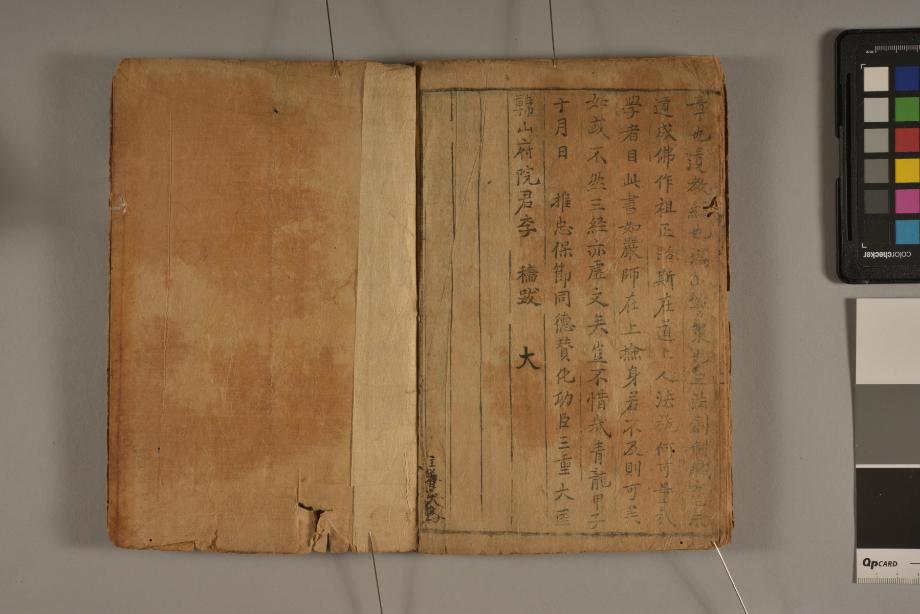 章也遺教經也溈山警策也三法
道成佛作祖正路斯在道上人法施何可量哉
學者目此書如嚴師在上撿身若不及則可矣
如或不然三經亦虛文矣豈不惜哉青龍甲子
于月日 推忠保節同德贊化功臣三重大匡
韓山府院君李 穡跋 大
colorchecker
QPCARD